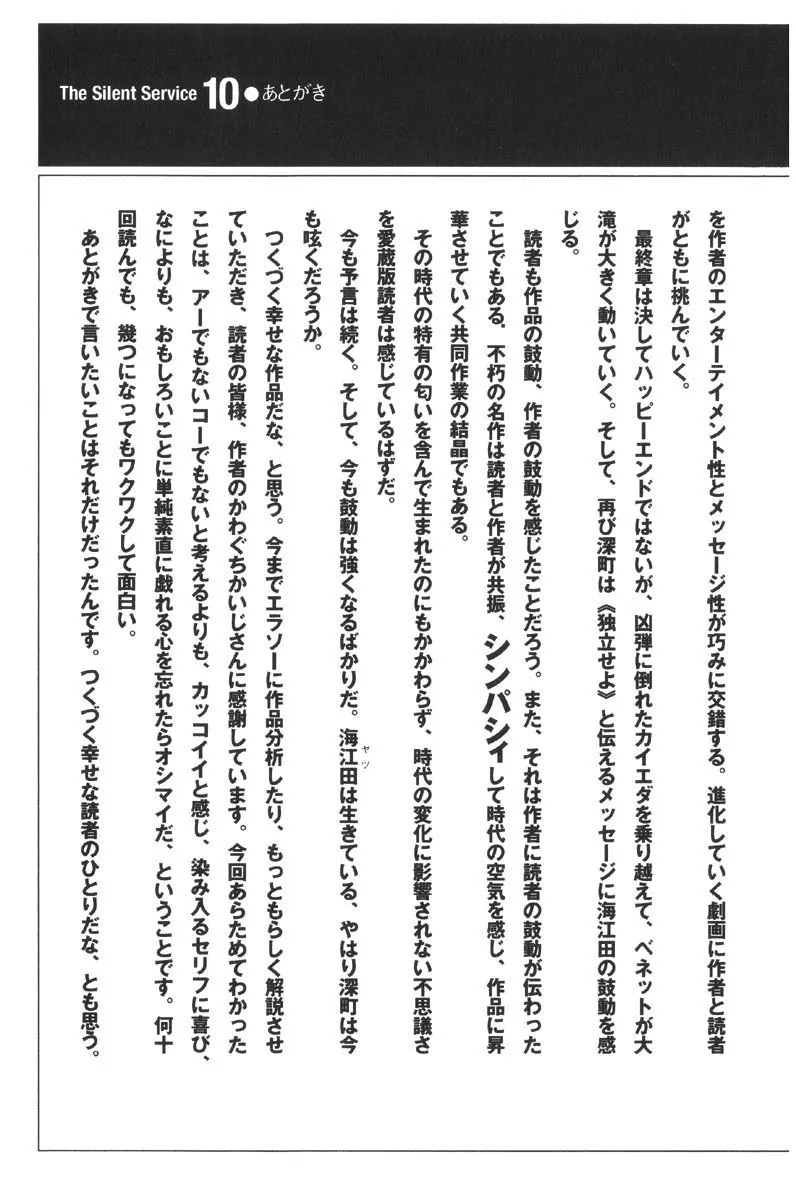 The Silent Service 10●あとがき
を作者のエンターテイメント性とメッセージ性が巧みに交錯する。進化していく劇画に作者と読者
がともに挑んでいく。
最終章は決してハッピーエンドではないが、凶弾に倒れたカイエダを乗り越えて、ベネットが大
滝が大きく動いていく。そして、再び深町は《独立せよ》と伝えるメッセージに海江田の鼓動を感
じる。
読者も作品の鼓動、作者の鼓動を感じたことだろう。また、それは作者に読者の鼓動が伝わった
ことでもある。不朽の名作は読者と作者が共振、シンパシィして時代の空気を感じ、作品に昇
華させていく共同作業の結晶でもある。
その時代の特有の匂いを含んで生まれたのにもかかわらず、時代の変化に影響されない不思議さ
を愛蔵版読者は感じているはずだ。
今も予言は続く。そして、今も鼓動は強くなるばかりだ。海江田は生きている、やはり深町は今
ヤツ
も呟くだろうか。
つくづく幸せな作品だな、と思う。今までエラソーに作品分析したり、もっともらしく解説させ
ていただき、読者の皆様、作者のかわぐちかいじさんに感謝しています。今回あらためてわかった
ことは、アーでもないコーでもないと考えるよりも、カッコイイと感じ、染み入るセリフに喜び、
なによりも、おもしろいことに単純素直に戯れる心を忘れたらオシマイだ、ということです。何十
回読んでも、幾つになってもワクワクして面白い。
あとがきで言いたいことはそれだけだったんです。つくづく幸せな読者のひとりだな、とも思う。